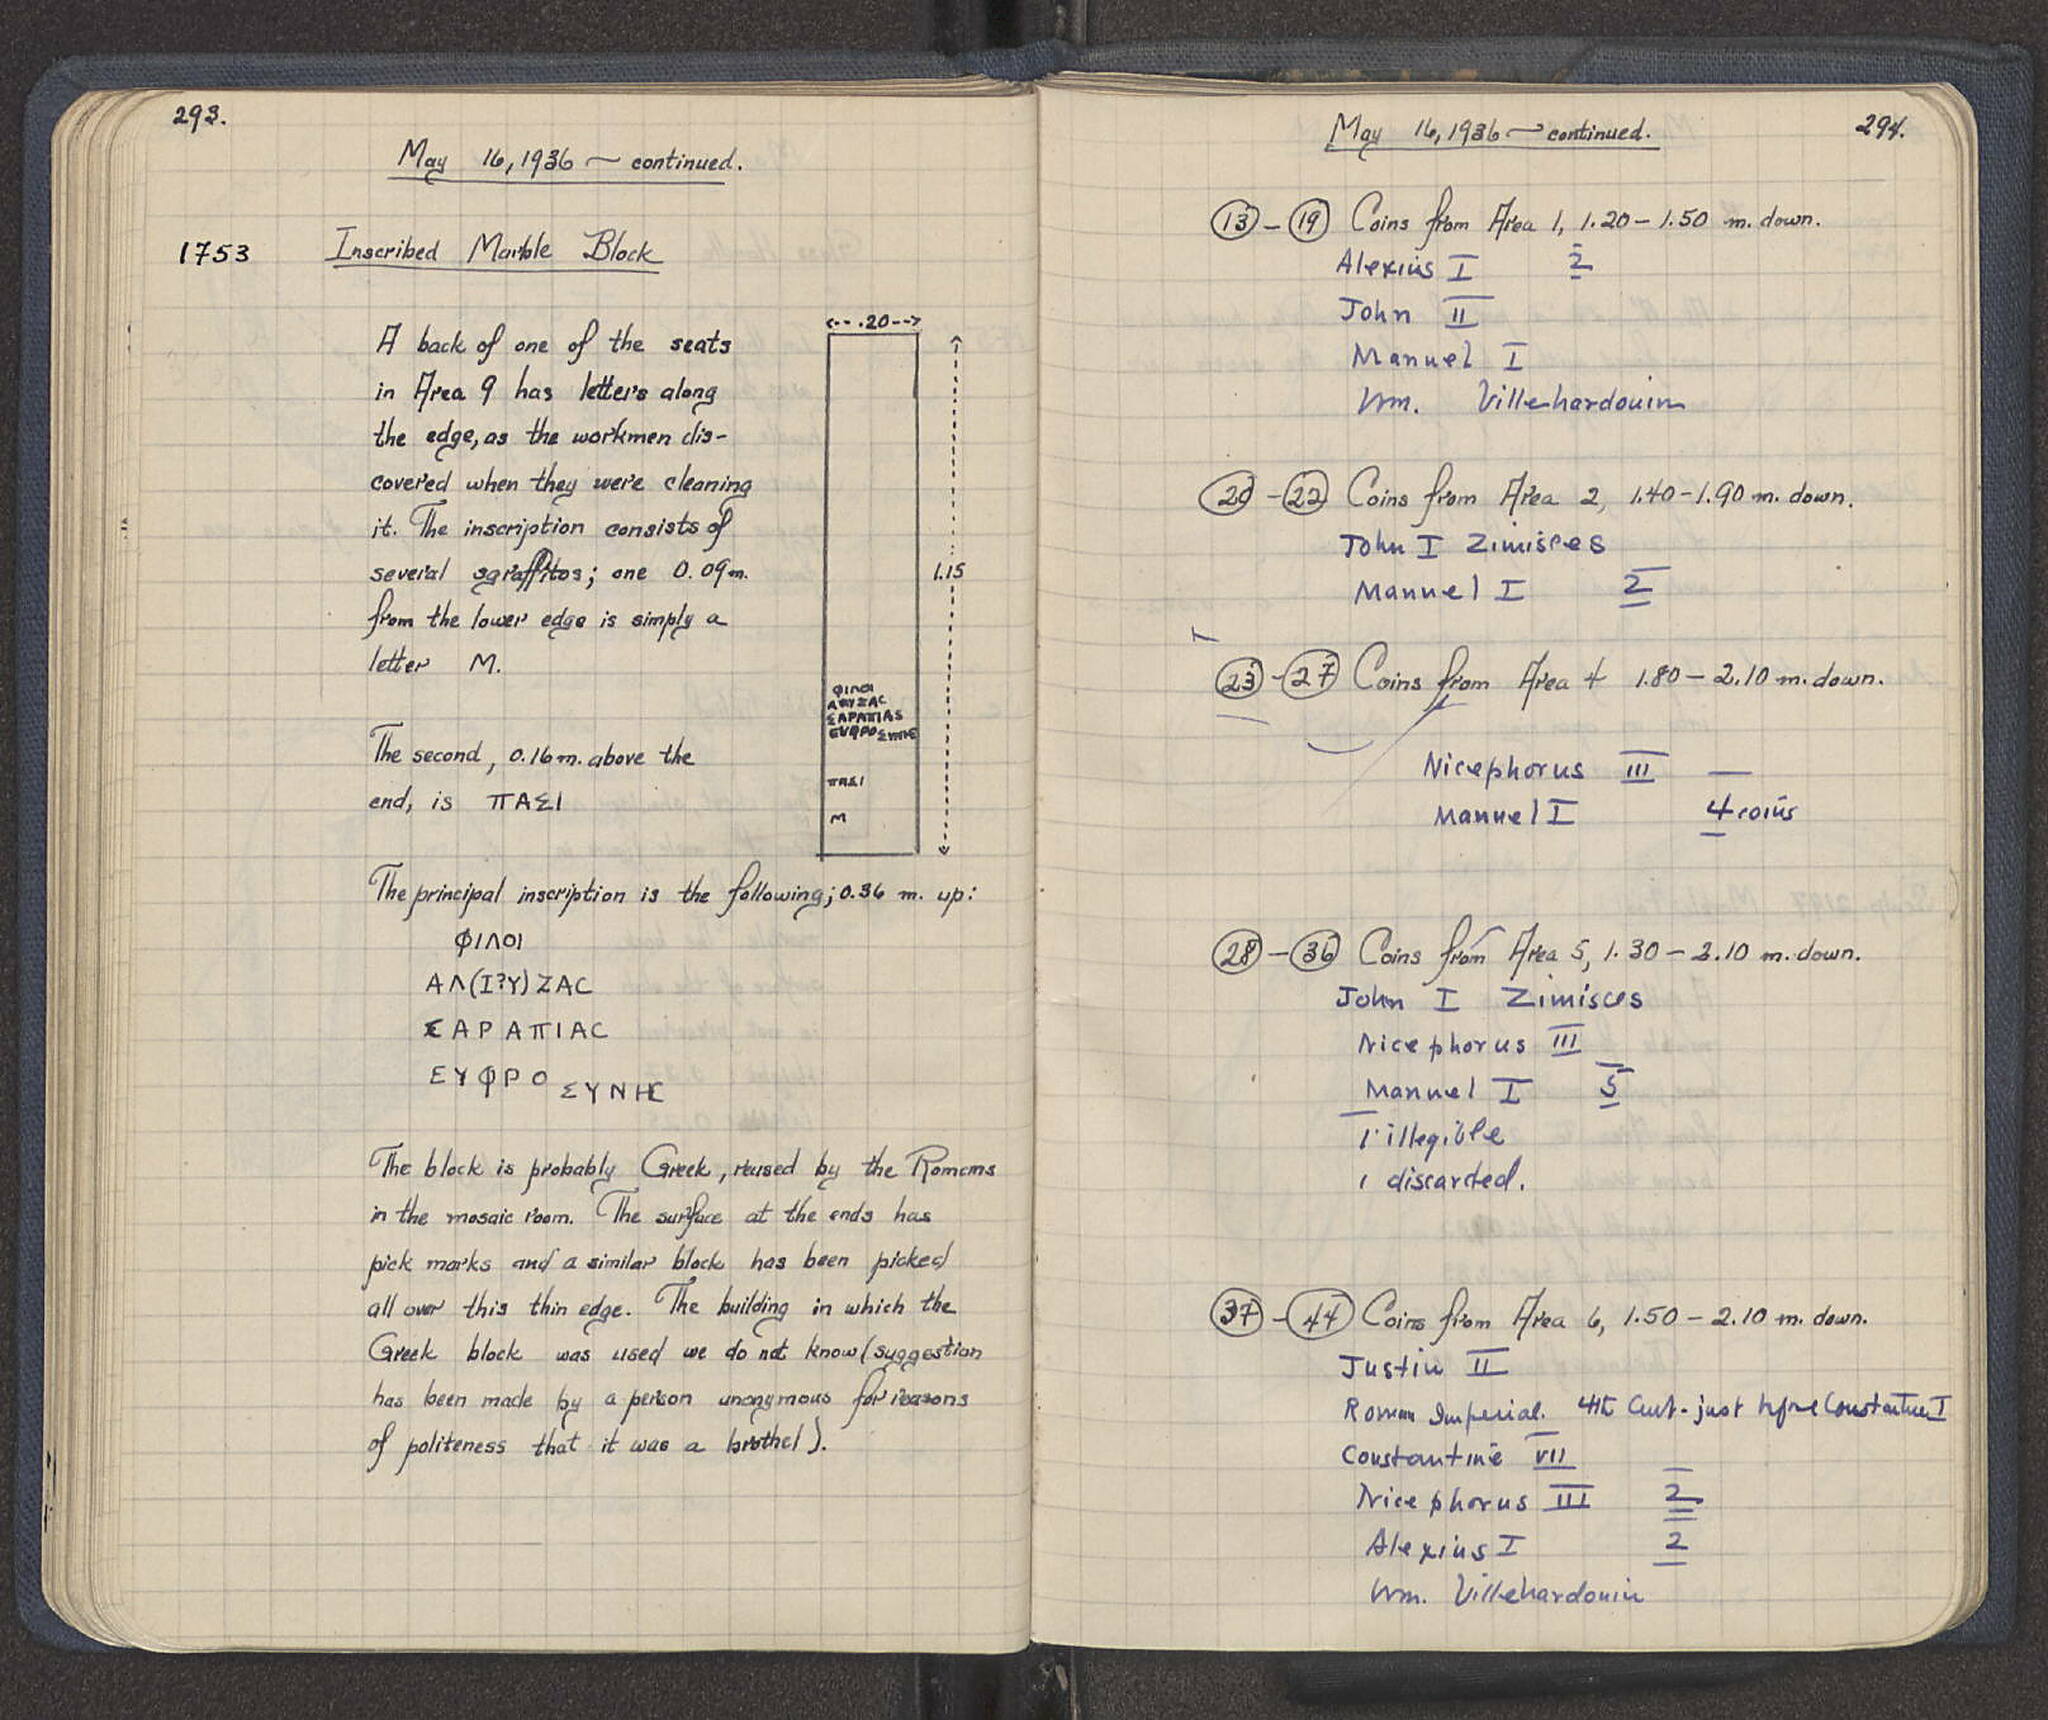 293.
May 16, 1936 — continued.
1753 Inscribed Marble Block
A back of one of the seats
in Area 9 has letters along
the edge, as the workmen dis-
covered when they were cleaning
it. The inscription consists of
several sgraffitos; one 0.09m.
from the lower edge is simply a
letter M.
The second, 0.16m. above the
end, is ΠΑΣΙ
.20
1.15
ΦΙΛΟΙ
ΣΑΡΑΠΙΑΣ
ΕΥΦΡΟΣΥΝΗΣ
ΠΑΣΙ
Μ
The principal inscription is the following; 0.36 m. up:
ΦΙΛΟΙ
ΑΛ(Ι?Υ)ΖΑC
ΣΑΡΑΠΙΑC
ΕΥΦΡΟΣΥΝΗC
The block is probably Greek, reused by the Romans
in the mosaic room. The surface at the ends has
pick marks and a similar block has been picked
all over this thin edge. The building in which the
Greek block was used we do not know (suggestion
has been made by a person anonymous for reasons
of politeness that it was a brothel).
May 16, 1936 — continued.
294.
13 – 19 Coins from Area 1, 1.20 – 1.50 m. down.
Alexius I 2
John II
Manuel I
Wm. Villehardouin
20 – 22 Coins from Area 2, 1.40 – 1.90 m. down.
John I Zimisces
Manuel I 2
23 – 27 Coins from Area 4 1.80 – 2.10 m. down.
Nicephorus III —
Manuel I 4 coins
28 – 36 Coins from Area 5, 1.30 – 2.10 m. down.
John I Zimisces
Nicephorus III
Manuel I 5
1 illegible
1 discarded.
37 – 44 Coins from Area 6, 1.50 – 2.10 m. down.
Justin II
Roman Imperial. 4th Cent. - just before Constantine I
Constantine VII
Nicephorus III 2
Alexius I 2
Wm. Villehardouin